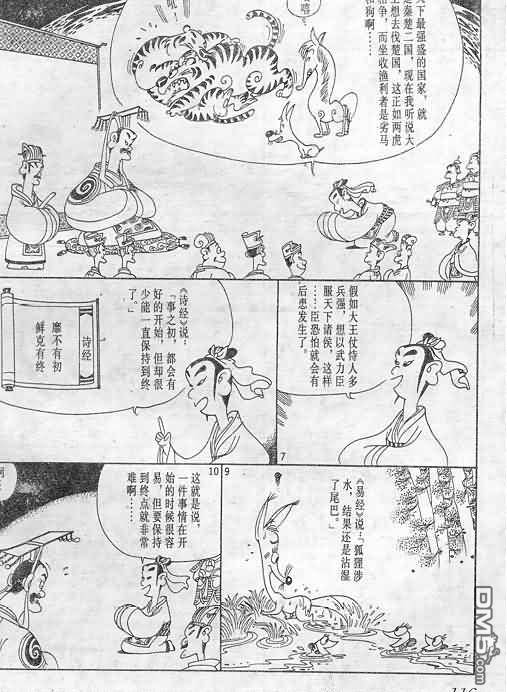 天下最强盛的国家，就
是秦楚二国，现在我听说大
王想去伐楚国，这正如两虎
相争，而坐收渔利者是劣马
和狗啊……
假如大王仗恃人多
兵强，想以武力臣
服天下诸侯，这样
……臣恐怕就会有
后患发生了。
7
《诗经》说：
「事之初，都会有
好的开始，但却很
少能一直保持到终
了。」
诗经
靡不有初
鲜克有终
9
《易经》说：「狐狸涉
水，结果还是沾湿
了尾巴。」
10
这就是说，
一件事情在开
始的时候很容
易，但要保持
到终点就非常
难啊……
DM5.com
116